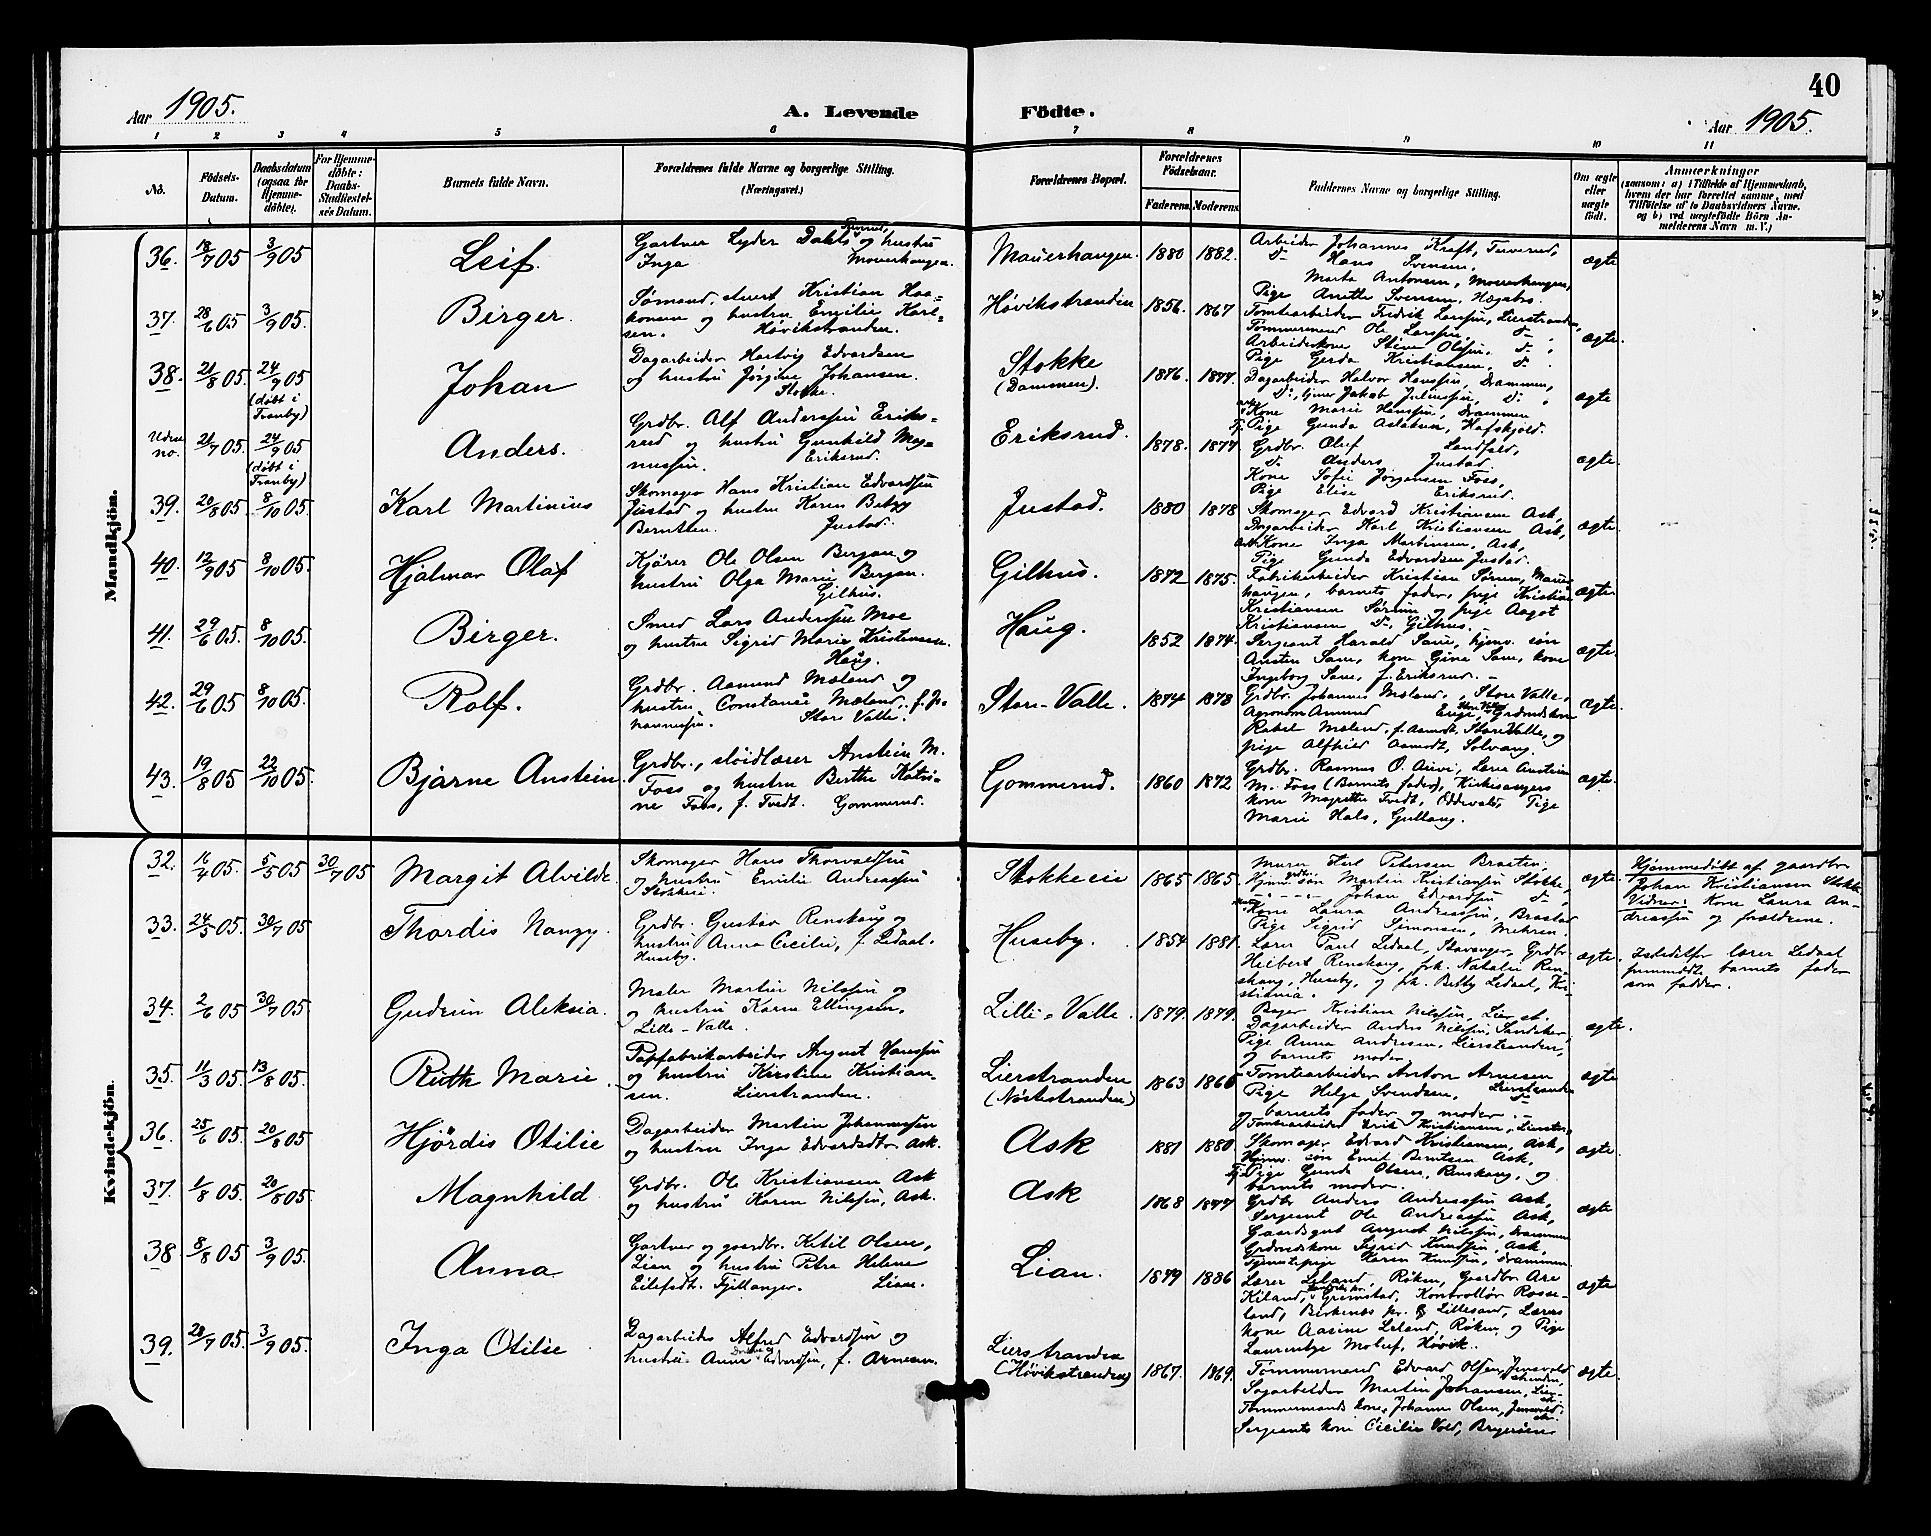 40
Aar 1905. A. Levende Födte. Aar 1905.
1 2 3 4 5 6 7 8 9 10 11
No.
Födsels-
Datum.
Daabsdatum
(ogsaa for
Hjemme-
døbte).
For Hjemme-
døbte:
Daabs-
Stadfæstel-
ses Datum.
Barnets fulde Navn.
Forældrenes fulde Navne og borgerlige Stilling.
(Næringsvei.)
Forældrenes Bopæl.
Forældrenes
Fødselsaar.
Faderens. Moderens.
Faddernes Navne og borgerlige Stilling.
Om ægte
eller
uægte
født.
Anmærkninger
(saasom: a) i Tilfælde af Hjemmedaab,
hvem der har forrettet samme, med
Tilföielse af to Daabsvidners Navne.
og b) ved uægtefødte Börn An-
melderens Navn m. V.)
Mandkjön.
36. 18/7 05 3/9 05 Leif.
Gartner Lyder Dahls og hustru
Inga Mouerhaugen.
Mauerhaugen. 1880 1882.
Arbeider Johannes Kraft,
Do Hans Svensen,
Marta Antonsen, Mouerhaugen,
Pige Anette Svensen,
ægte
37. 28/6 05 3/9 05. Birger.
Sømand Kristian Haa-
konsen og hustru Emilie Karl-
sen. Høvikstranden.
Høvikstranden 1856. 1867
Tomtearbeider Fredrik Larssen, Lierstranden,
Tømmermand Ole Larssen, Do
Arbeiderkone Stine Olssen, Do
Pige Gerda Kristiansen, Do
ægte.
38. 21/8 05. 24/9 05
(døbt i
Tranby)
Johan
Dagarbeider Hartvig Edvardsen
og hustru Jørgine Johansen.
Stokke.
Stokke
(Dammen). 1876. 1877.
Dagarbeider Halvor Hanssen, Drammen,
Kone Marie Hanssen, Drammen
Pige Gunda Aslaksen, Hafskjold.
ægte
Uden
no. 21/7 05. 24/9 05
(døbt i
Tranby)
Anders.
Grdbr. Alf Anderssen Eriks-
rud og hustru Gunhild Mag-
nussen. Eriksrud.
Eriksrud. 1878. 1877
Grdbr. Oluf Landfald,
Do Anders Justad,
Kone Sofie Jørgensen Foss,
Pige Elise Eriksrud.
ægte.
39. 20/8 05. 8/10 05. Karl Martinius
Skomager Hans Kristian Edvardsen
Justad og hustru Karen Betzy
Berntsen. Justad.
Justad. 1880 1878
Skomager Edvard Kristiansen Ask,
Dagarbeider Karl Kristiansen Ask,
Kone Inga Martinsen, Ask,
Pige Gunda Edvardsen Justad.
ægte.
40. 12/9 05 8/10 05. Hjalmar Olaf
Kjører Ole Olsen Bergan og
hustru Olga Marie Bergan.
Gilhus.
Gilhus. 1872 1875.
Fabrikarbeider Kristian Sørum, Mauer-
haugen, barnets fader, pige Kristine
Kristiansen Sørum og pige Aagot
Kristiansen Do, Gilhus.
ægte.
41. 29/6 05. 8/10 05. Birger.
Smed Lars Anderssen Moe
og hustru Sigrid Marie Kristensen.
Haug.
Haug. 1852 1874.
Sergeant Harald Saue, hjmv. søn
Austen Saue, kone Gina Saue, kone
Ingeborg Saue, f. Eriksrud. -
ægte.
42. 29/6 05 8/10 05. Rolf.
Grdbr. Aamund Mæland og
hustru Constance Mæland, f. Jo-
hannessen. Store Valle.
Store-Valle. 1874 1878
Grdbr. Johannes Mæland, Store Valle,
Agronom Amund Enge, Store Valle, Grdmdskone
Rakel Mæland, f. Aamodt, Store Valle, og
pige Alfhild Aamodt, Solvang.
ægte.
43. 19/8 05 22/10 05. Bjarne Anstein
Grdbr., sløidlærer Anstein M.
Foss og hustru Berthe Katri-
ne Foss, f. Tvedt. Gommerud.
Gommerud. 1860 1872
Grdbr. Rasmus O. Lærer Anstein
M. Foss (Barnets fader), Kirkesangers
kone Magrethe Tvedt, Oddevald, Pige
Marie Hals, Gullaug.
ægte.
Kvindekjön.
32. 16/4 05. 5/5 05 30/7 05 Margit Alvilde
Skomager Hans Thorvaldsen
og hustru Emilie Andreassen
Stokkeeie.
Stokkeeie 1865 1865.
Murer Petersen Braaten,
Hjmv. søn Martin Kristiansen Stokke,
Johan Edvardsen Do
Kone Laura Andreassen,
Pige Sigrid Simonsen, Mehren.
ægte.
Hjemmedøbt af gaardbr
Johan Kristiansen Stokke
Vidner: Kone Laura An-
dreassen og forældrene.
33. 24/5 05. 30/7 05. Thordis Nanzy.
Grdbr. Gustav Renskaug og
hustru Anna Cecilie, f. Ledaal.
Huseby.
Huseby. 1854 1881.
Lærer Paul Ledaal, Stavanger, Grdbr.
Heibert Renskaug, frk. Natalie Ren-
skaug, Huseby, og frk. Betty Ledaal, Kri-
stiania.
ægte.
Istedetfor lærer Ledaal
fremmødte barnets fader
som fadder.
34. 2/6 05 30/7 05. Gudrun Aleksia.
Maler Martin Nilssen og
og hustru Karen Ellingsen,
Lille-Valle.
Lille-Valle. 1879. 1879.
Bager Kristian Nilssen, Lier st.
Dagarbeider Anders Nilssen,
Pige Anna Andresen, Lierstranden,
og barnets moder.
ægte.
35. 11/3 05. 13/8 05. Ruth Marie.
Papfabrikarbeider August Hanssen
og hustru Kirstine Kristian-
sen. Lierstranden.
Lierstranden
(Nøstestranden) 1863 1866
Tomtearbeider Anton Arnesen
Pige Helga Svendsen, Lierstranden
og barnets fader og moder. -
Tomtearbeider Erik Kristiansen, Lierstr.
ægte
36. 25/6 05. 20/8 05 Hjördis Otilie
Dagarbeider Martin Johannessen
og hustru Inga Edvardsdtr. Ask.
Ask 1881 1880.
Skomager Edvard Kristiansen, Ask,
Hjmv. søn Emil Berntsen Ask,
Pige Gunda Olsen, Renskaug, og
barnets moder.
ægte.
37. 1/8 05. 20/8 05. Magnhild
Grdbr. Ole Kristiansen Ask
og hustru Karen Nilssen, Ask.
Ask 1868 1877
Grdbr Anders Andreassen Ask,
Sergeant Ole Andreassen Ask,
Gaardsgut August Nilssen, Drammen
Grdmdskone Sigrid Knudsen, Ask,
Tjenestepige Karen Knudsen, Drammen
ægte
38 8/8 05 3/9 05. Anna
Gartner og gaardbr. Ketil Olsen,
Lian og hustru Petra Helene
Eilefsdt. Fjellanger. Lian.
Lian. 1879 1886
Lærer Leland, Røken, Gaardbr Are
Kiland, Grimstad, Kontrollør Rosse-
land, Birkenes pr. Lillesand, Lærers
kone Aasine Leland, Røken, og Pige
Laurentze Høvik.
ægte
39. 20/7 05. 3/9 05. Inga Otilie
Dagarbeider Alfred Edvardsen og
hustru Anna Edvardsen, f. Arnesen.
Lierstranden
(Høvikstranden) 1867. 1869.
Tømmermand Edvard Olsen, Jensvold
Sagarbeider Martin Johansen, Lier-
Tømmermands kone, Johanne Olsen, Jensvold
Sergeants kone Cecilie Vold,
ægte.